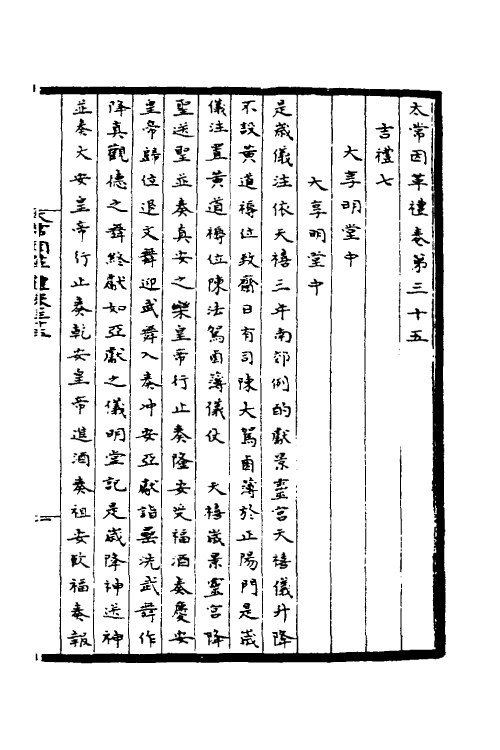 太常因革禮卷第三十五
吉禮七
大享明堂中
大享明堂中
是歲儀注依天禧三年南郊例的獻景靈宮天禧儀升降
不設黃道褥位致齋日有司陳大駕鹵簿於正陽門是歲
儀注置黃道褥位陳法駕鹵簿儀仗　天禧歲景靈宮降
聖送聖並奏真安之樂皇帝行止奏隆安受福酒奏慶安
皇帝歸位退文舞迎武舞入奏冲安亞獻詣罍洗武舞作
降真觀德之舞終獻如亞獻之儀明堂記是歲降神送神
並奏大安皇帝行止奏乾安皇帝進酒奏祖安飲福奏報